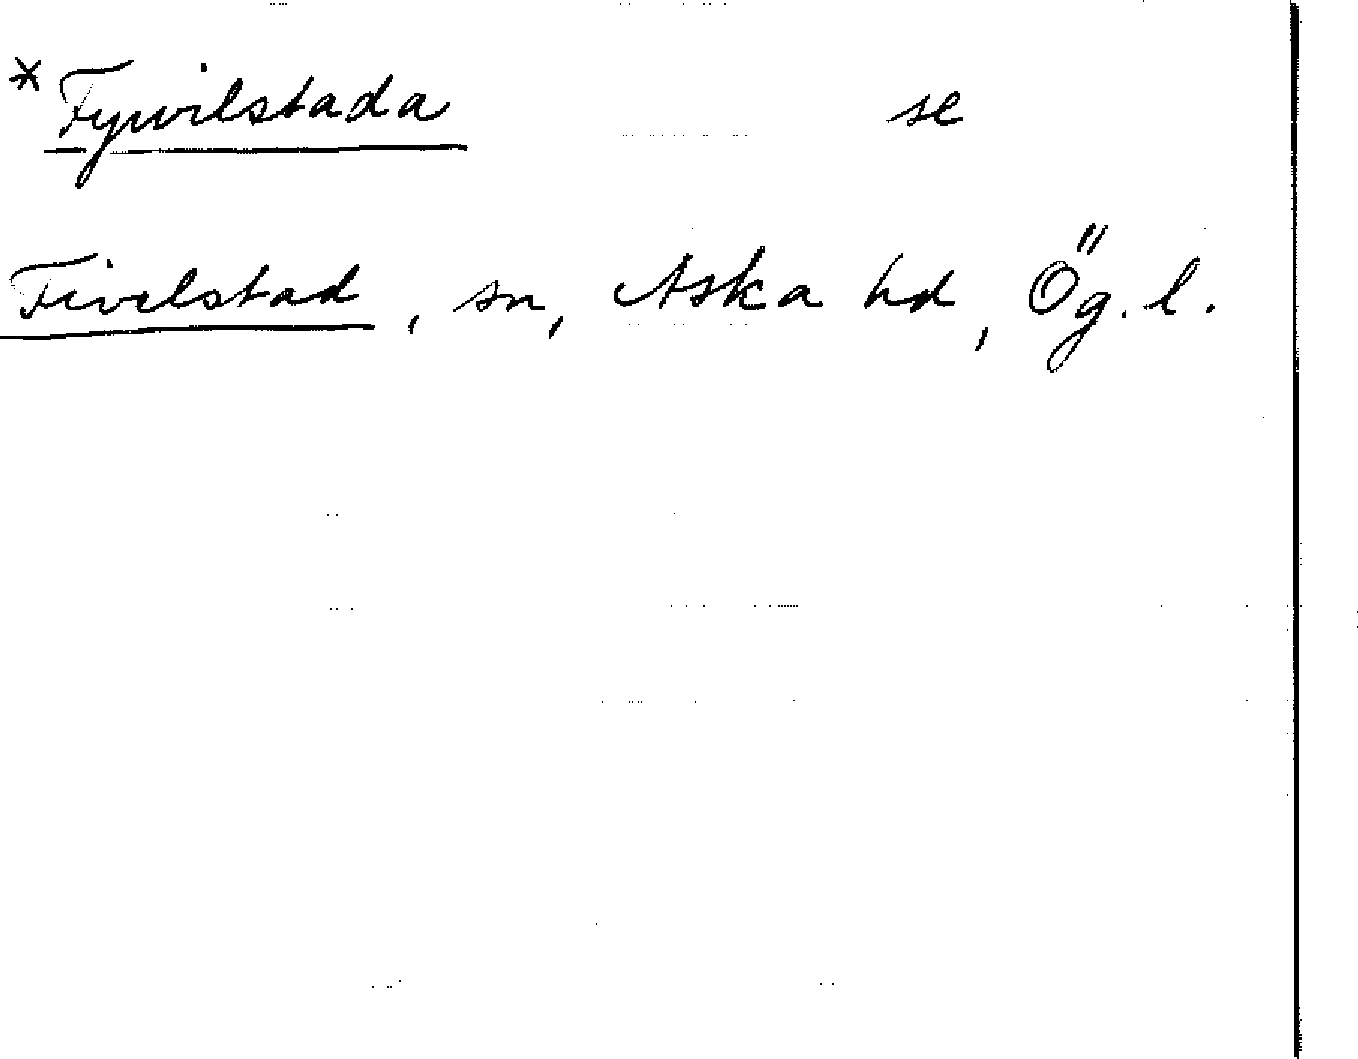 * Fywilstada se
Fivelstad, sn, Aska hd, Ög. l.